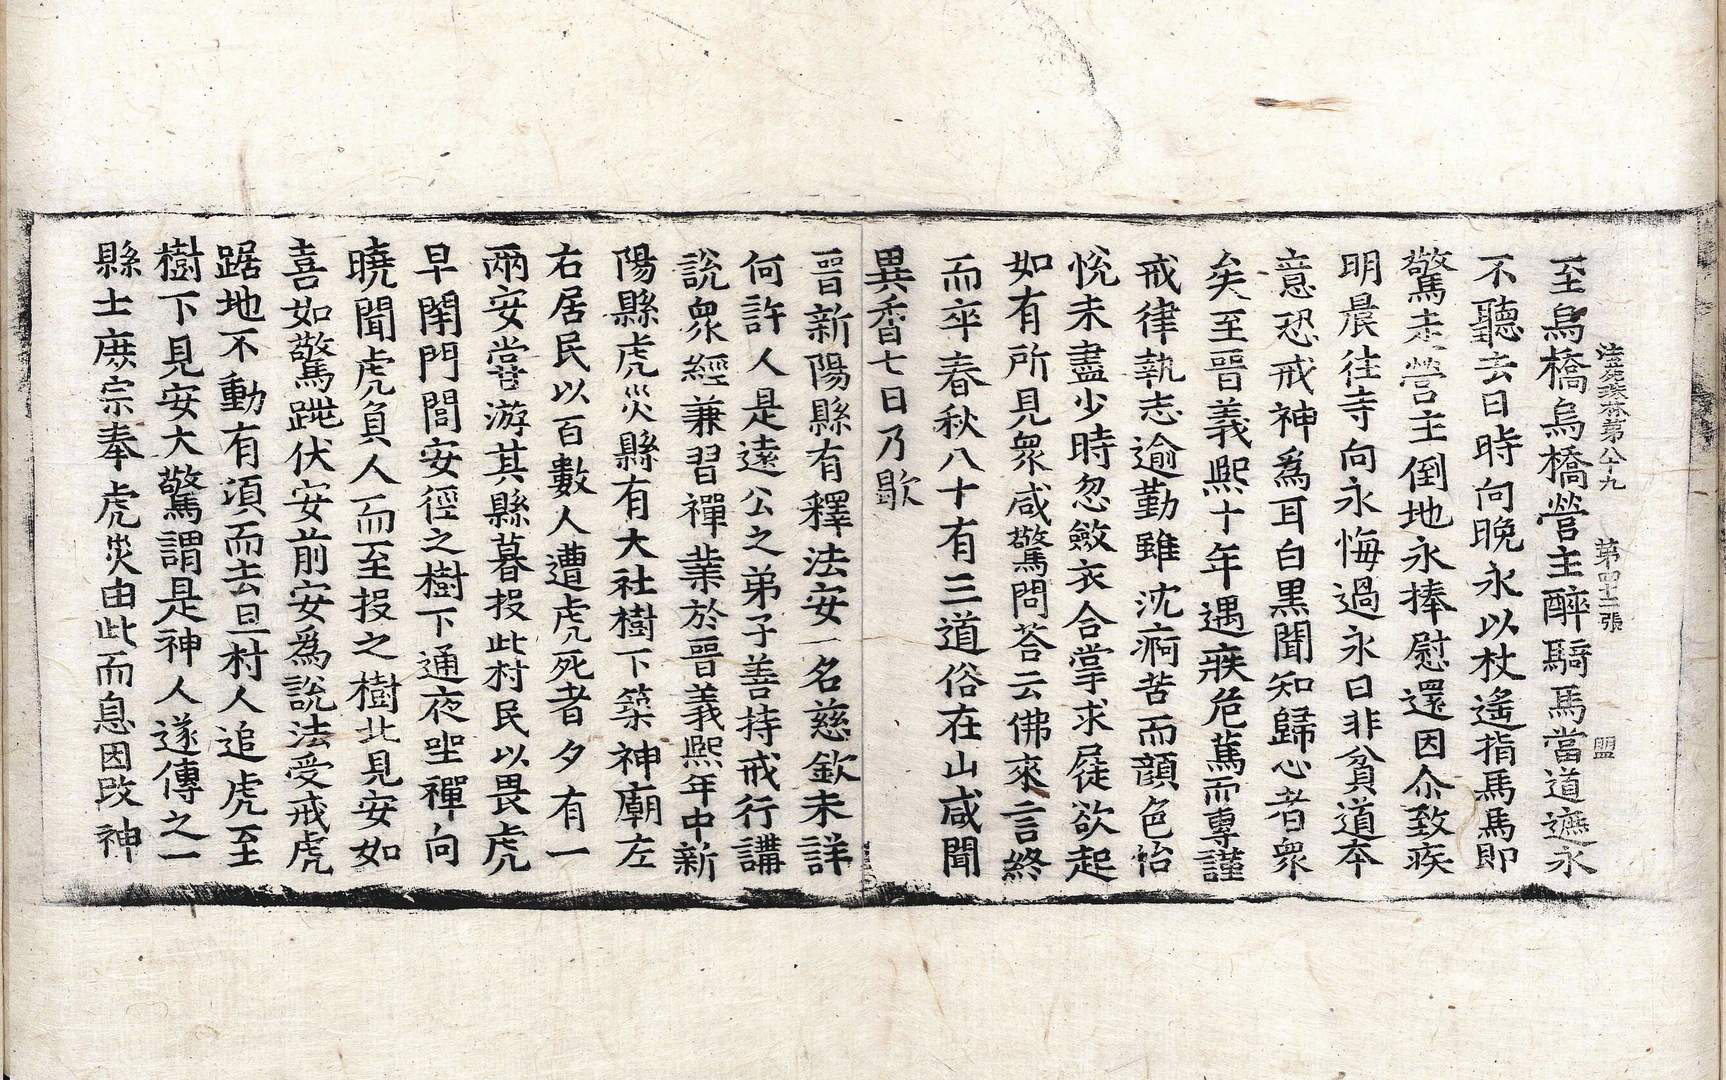 法苑珠林第八十九　第四十二張　盟
至烏橋烏橋營主醉騎馬當道遮永
不聽去日時向晚永以杖遙指馬馬即
驚走營主倒地永捧慰還因尒致疾
明晨往寺向永悔過永曰非貧道本
意恐戒神爲耳白黒聞知歸心者衆
矣至晉義熙十年遇疾危篤而專謹
戒律執志逾勤雖沈痾苦而顔色怡
悅未盡少時忽斂衣合掌求屣欲起
如有所見衆咸驚問荅云佛來言終
而卒春秋八十有三道俗在山咸聞
異香七日乃歇
晉新陽縣有釋法安一名慈欽未詳
何許人是遠公之弟子善持戒行講
說衆經兼習禪業於晉義熙年中新
陽縣虎災縣有大社樹下築神廟左
右居民以百數人遭虎死者夕有一
兩安甞游其縣暮投此村民以畏虎
早閇門閭安徑之樹下通夜坐禪向
曉聞虎負人而至投之樹北見安如
喜如驚跳伏安前安爲說法受戒虎
踞地不動有須而去旦村人追虎至
樹下見安大驚謂是神人遂傳之一
縣士庶宗奉虎災由此而息因改神